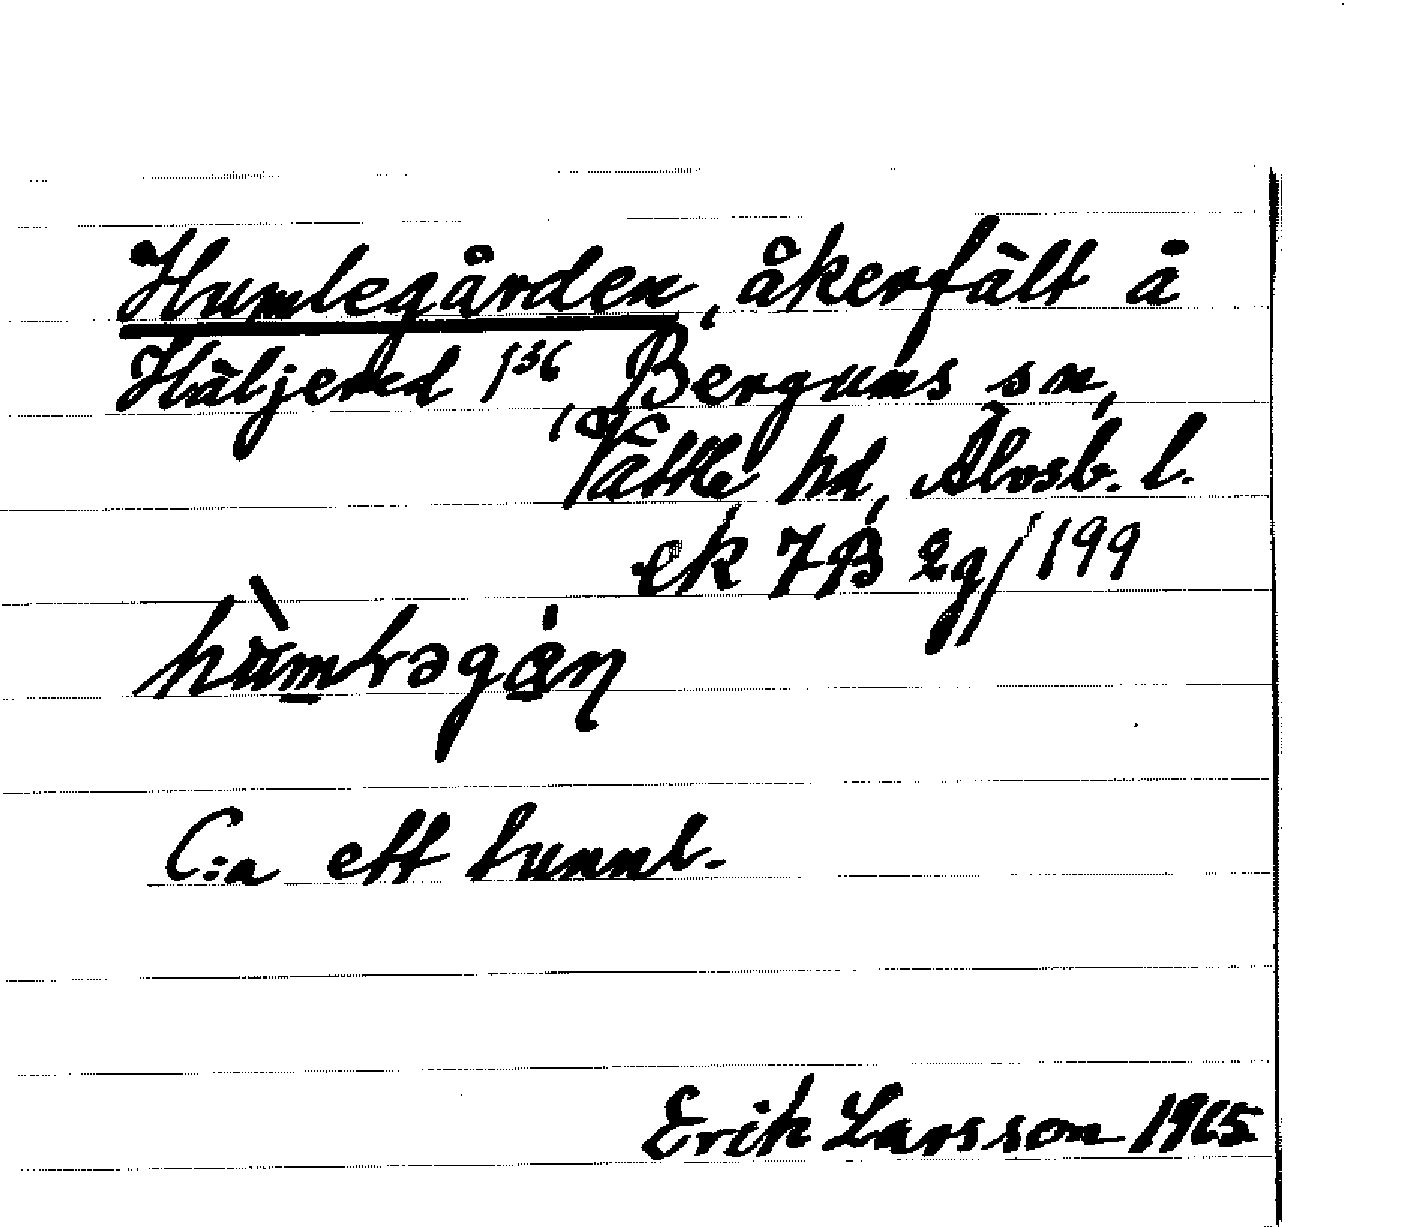 Humlegården, åkerfält å
Häljered 1³⁶, Bergums sn,
Vättle hd, Älvsb. l.
ek 7B 2g/199
C:a ett tunnl.
Erik Larsson 1965